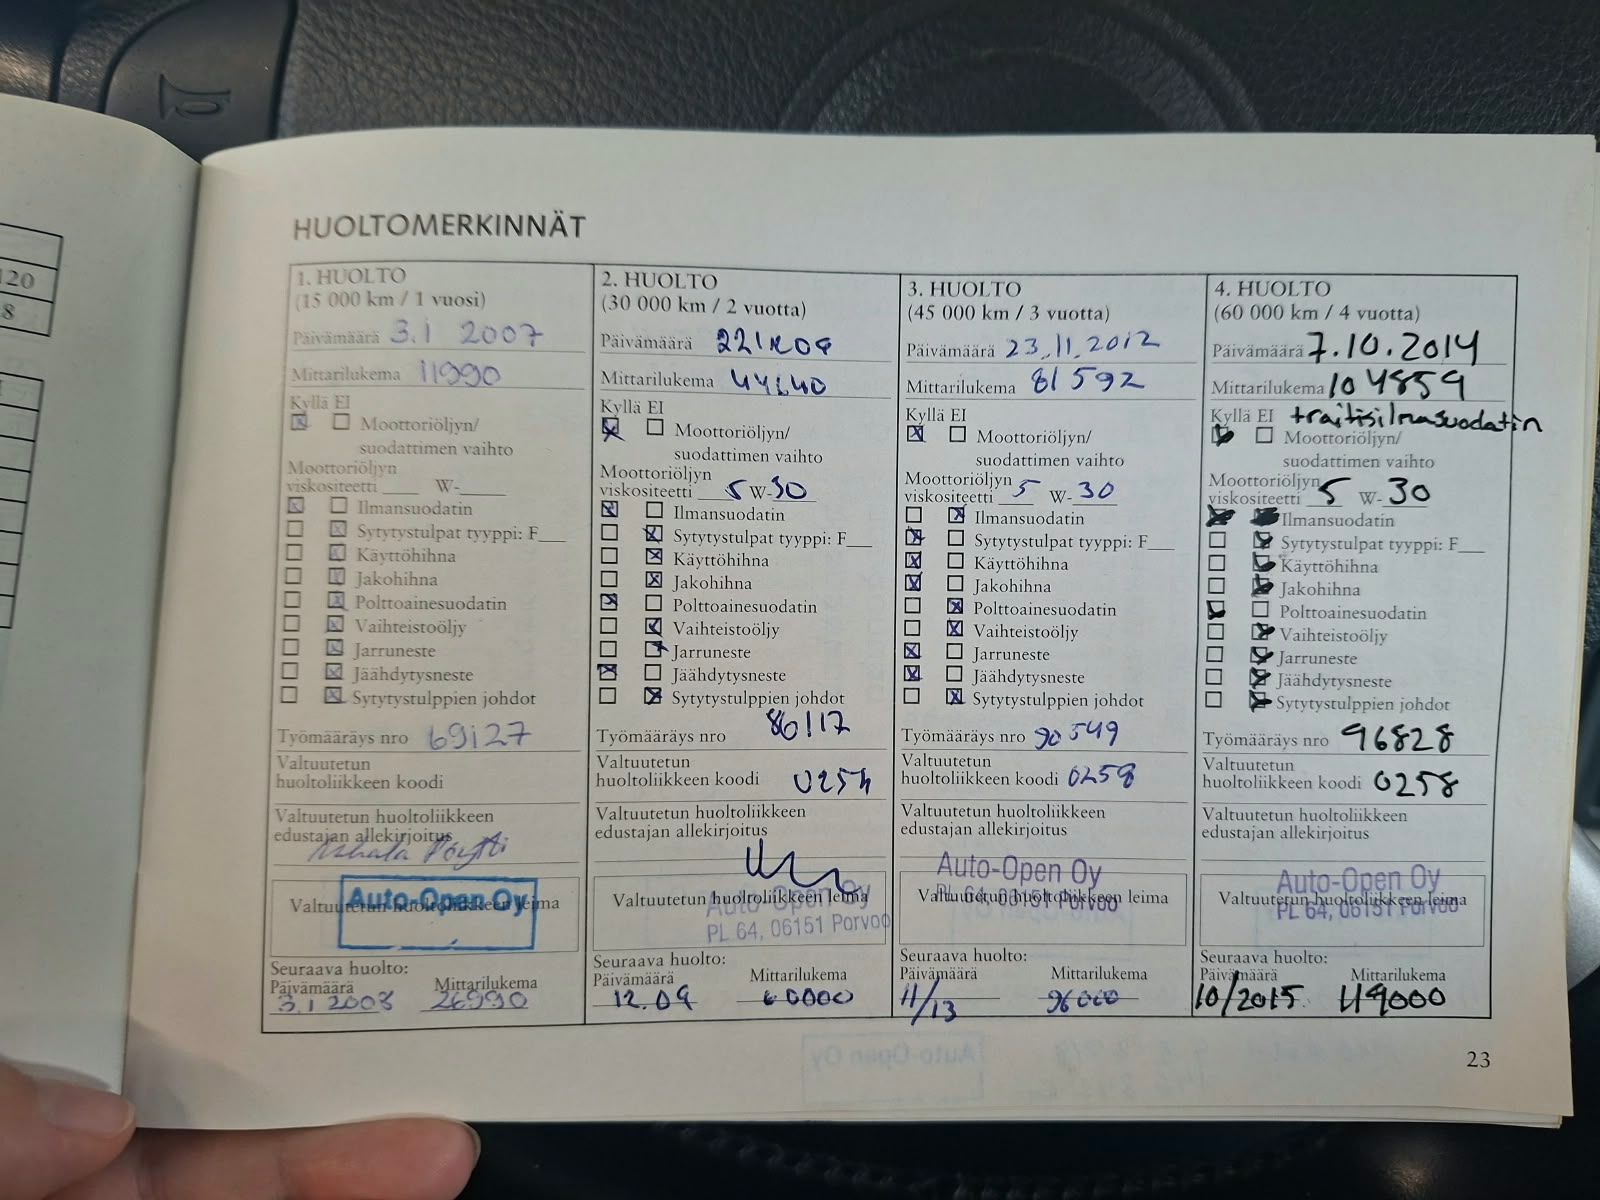 120
8
HUOLTOMERKINNÄT
1. HUOLTO
(15 000 km / 1 vuosi)
Päivämäärä 3.1 2007
Mittarilukema 11990
Kyllä EI
Moottoriöljyn/
suodattimen vaihto
Moottoriöljyn
viskositeetti ___ W-___
Ilmansuodatin
Sytytystulpat tyyppi: F__
Käyttöhihna
Jakohihna
Polttoainesuodatin
Vaihteistoöljy
Jarruneste
Jäähdytysneste
Sytytystulppien johdot
Työmääräys nro 69127
Valtuutetun
huoltoliikkeen koodi
Valtuutetun huoltoliikkeen
edustajan allekirjoitus
Auto-Open Oy
Valtuutetun huoltoliikkeen leima
Seuraava huolto:
Päivämäärä Mittarilukema
3.1 2008 26990
2. HUOLTO
(30 000 km / 2 vuotta)
Päivämäärä
Mittarilukema 44640
Kyllä EI
Moottoriöljyn/
suodattimen vaihto
Moottoriöljyn
viskositeetti 5 W-30
Ilmansuodatin
Sytytystulpat tyyppi: F__
Käyttöhihna
Jakohihna
Polttoainesuodatin
Vaihteistoöljy
Jarruneste
Jäähdytysneste
Sytytystulppien johdot
Työmääräys nro 86117
Valtuutetun
huoltoliikkeen koodi
Valtuutetun huoltoliikkeen
edustajan allekirjoitus
Valtuutetun huoltoliikkeen leima
Auto-Open Oy
PL 64, 06151 Porvoo
Seuraava huolto:
Päivämäärä Mittarilukema
12.09 60000
3. HUOLTO
(45 000 km / 3 vuotta)
Päivämäärä 23.11.2012
Mittarilukema 81592
Kyllä EI
Moottoriöljyn/
suodattimen vaihto
Moottoriöljyn
viskositeetti 5 W-30
Ilmansuodatin
Sytytystulpat tyyppi: F__
Käyttöhihna
Jakohihna
Polttoainesuodatin
Vaihteistoöljy
Jarruneste
Jäähdytysneste
Sytytystulppien johdot
Työmääräys nro 90549
Valtuutetun
huoltoliikkeen koodi 0258
Valtuutetun huoltoliikkeen
edustajan allekirjoitus
Auto-Open Oy
PL 64, 06151 Porvoo
Valtuutetun huoltoliikkeen leima
Seuraava huolto:
Päivämäärä Mittarilukema
11/13 96000
4. HUOLTO
(60 000 km / 4 vuotta)
Päivämäärä 7.10.2014
Mittarilukema 104859
Kyllä EI traitisilmasuodatin
Moottoriöljyn/
suodattimen vaihto
Moottoriöljyn
viskositeetti 5 W-30
Ilmansuodatin
Sytytystulpat tyyppi: F__
Käyttöhihna
Jakohihna
Polttoainesuodatin
Vaihteistoöljy
Jarruneste
Jäähdytysneste
Sytytystulppien johdot
Työmääräys nro 96828
Valtuutetun
huoltoliikkeen koodi 0258
Valtuutetun huoltoliikkeen
edustajan allekirjoitus
Auto-Open Oy
Valtuutetun huoltoliikkeen leima
PL 64, 06151 Porvoo
Seuraava huolto:
Päivämäärä Mittarilukema
10/2015 119000
23